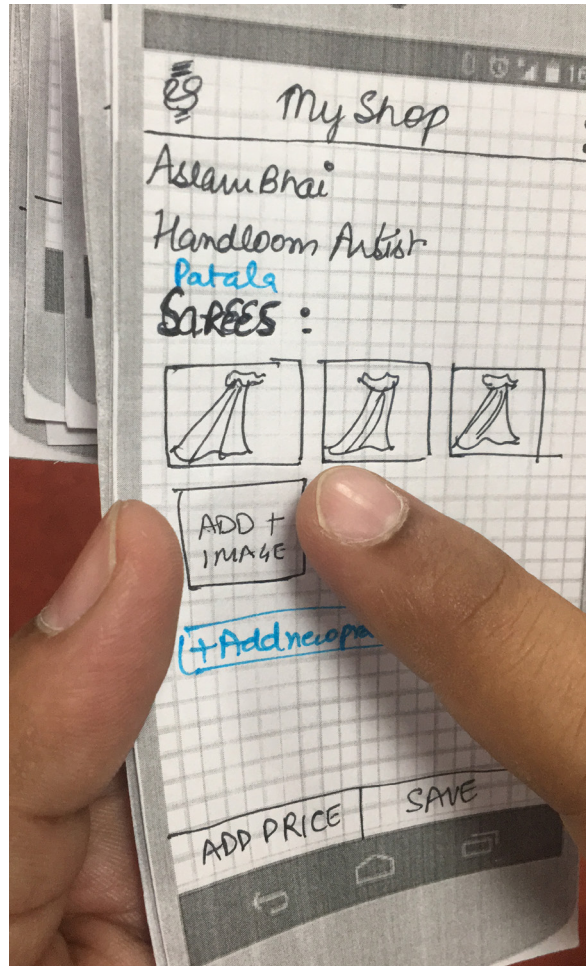 My Shop
Aslam Bhai
Handloom Artist
Patala
SaREES :
ADD +
IMAGE
+Add new
ADD PRICE
SAVE